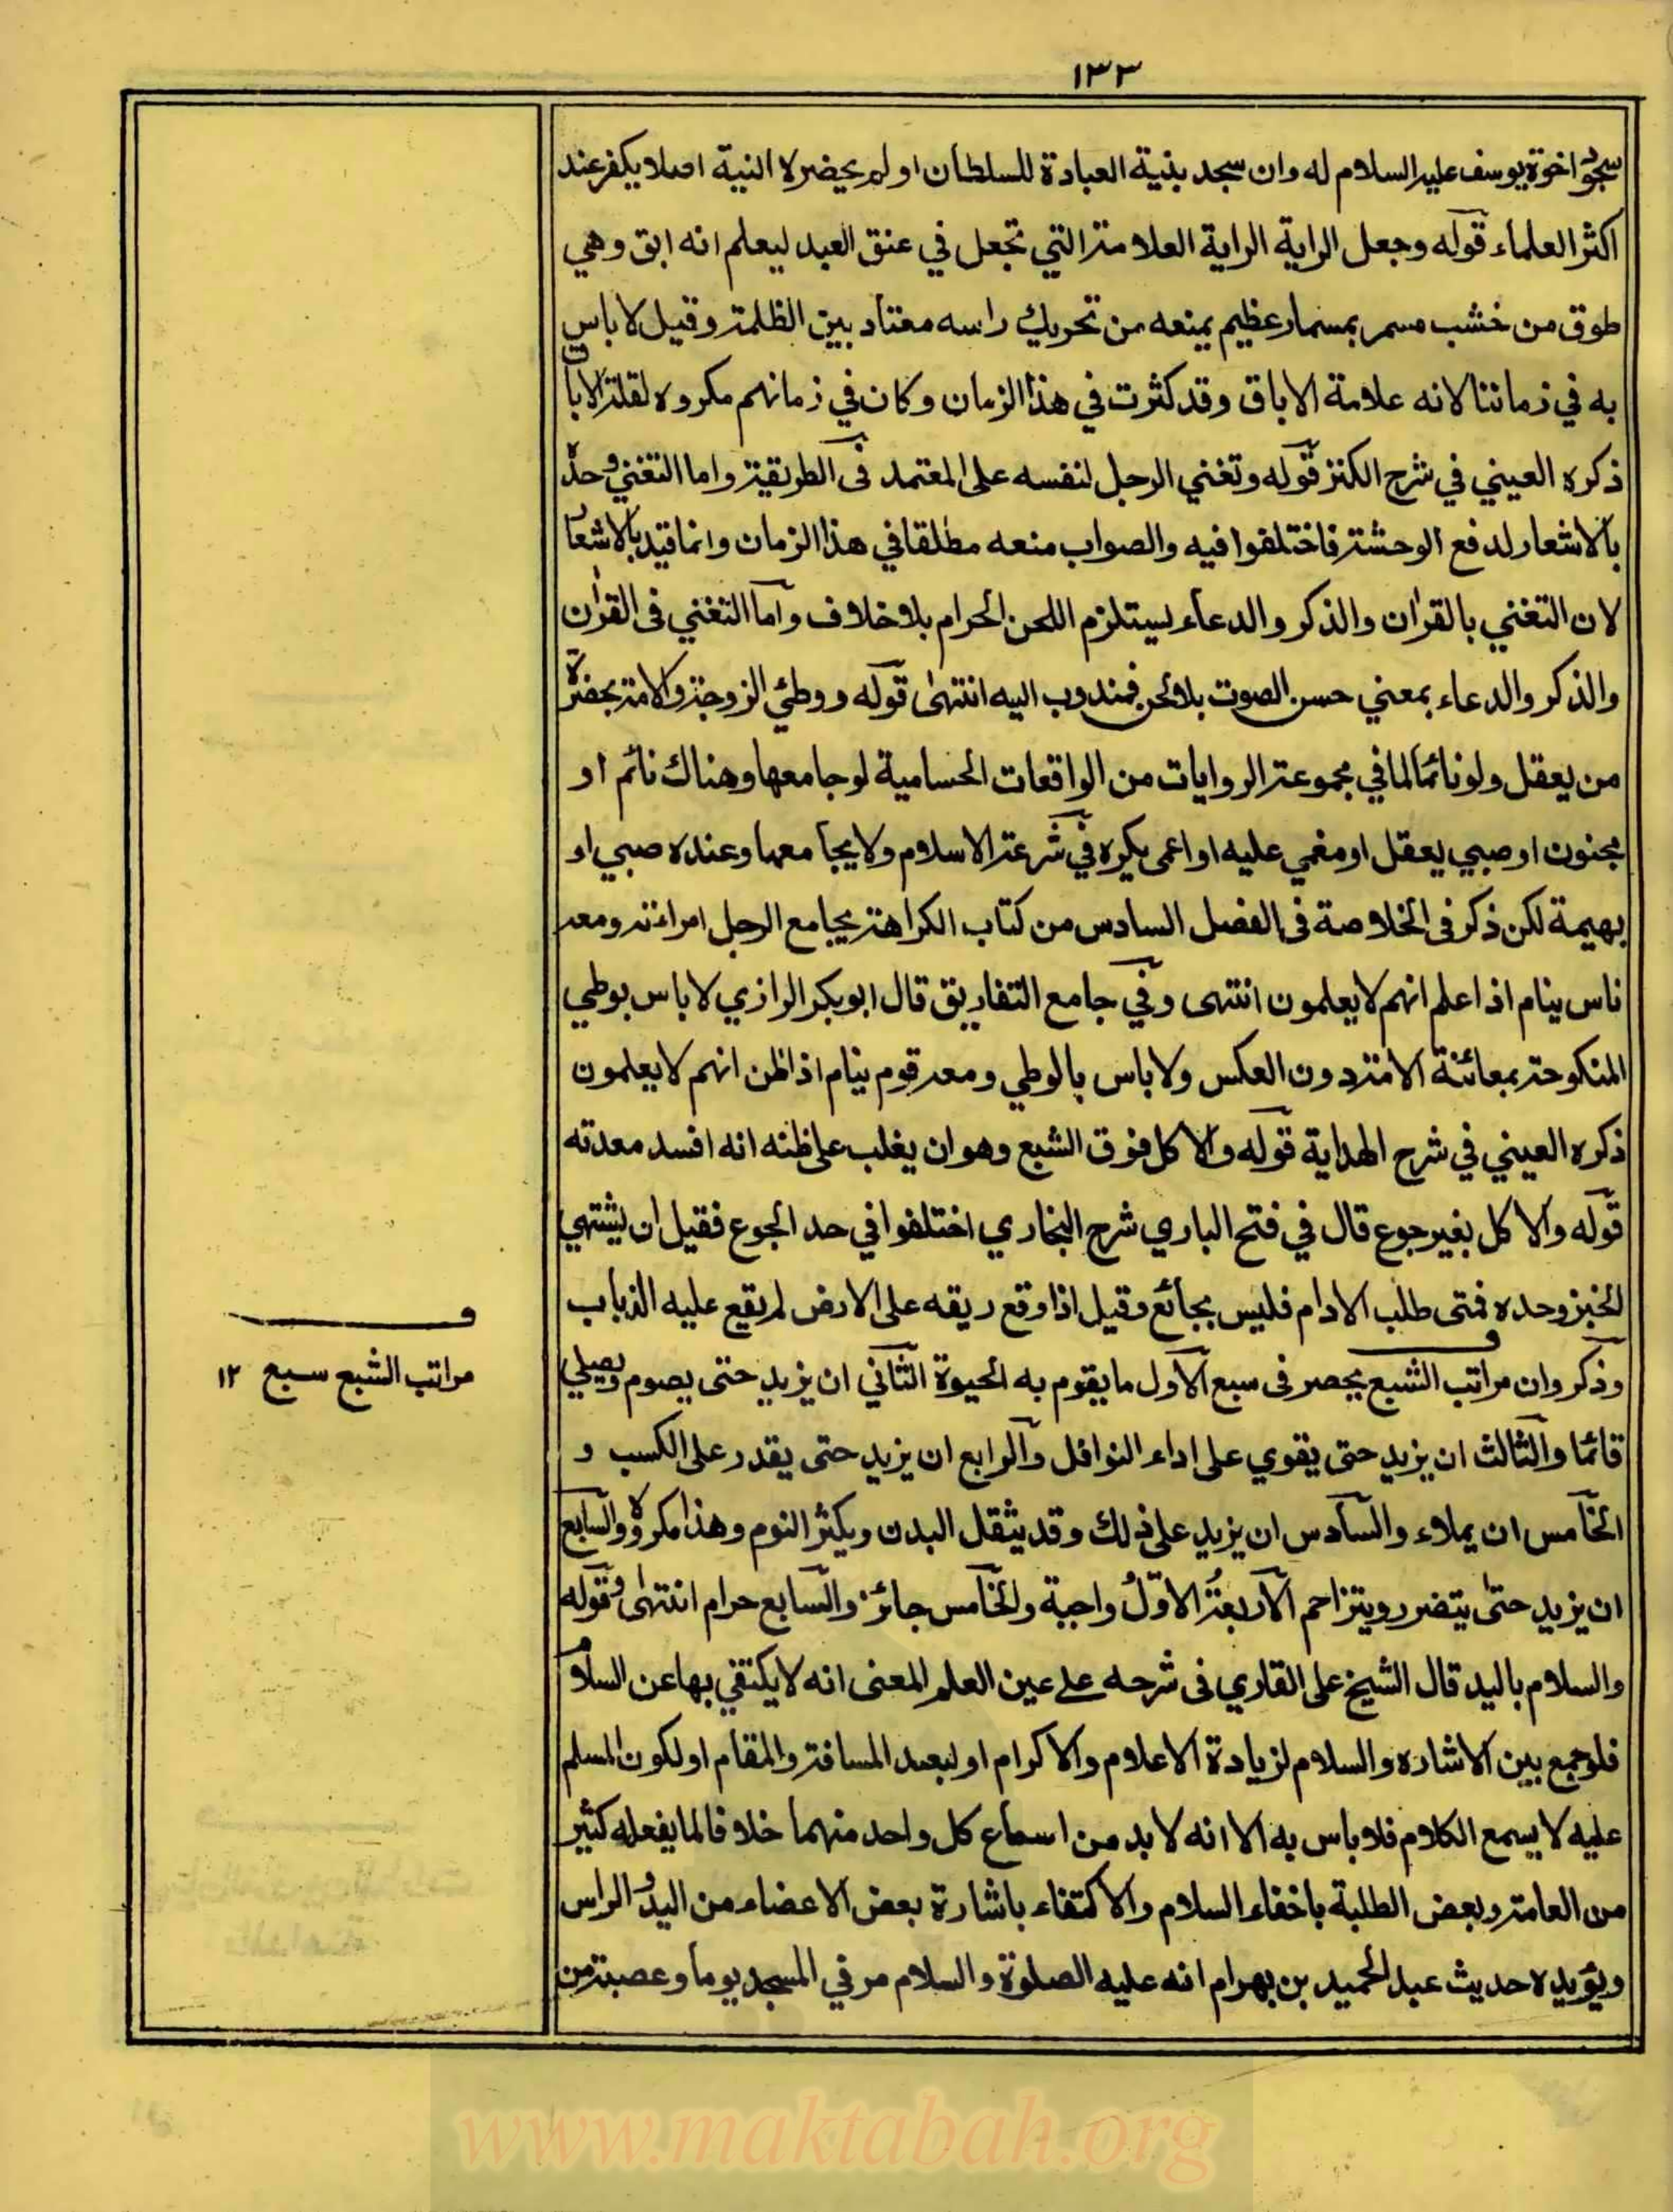 ١٣٣
سجود اخوة يوسف عليه السلام له وان سجد بنية العبادة للسلطان او لم يحضر لا النية اصلا يكفر عند
اكثر العلماء قوله وجعل الراية الراية العلامة التي تجعل في عنق العبد ليعلم انه ابق وهي
طوق من خشب مسمر بمسمار عظيم يمنعه من تحريك راسه معتاد بين الظلمة وقيل لا باس
به في زماننا لانه علامة الاباق وقد كثرت في هذا الزمان وكان في زمانهم مكروه لقلة الاباق
ذكره العيني في شرح الكنز قوله وتغني الرجل لنفسه على المعتمد في الطريقة واما التغني وحده
بالاشعار لدفع الوحشة فاختلفوا فيه والصواب منعه مطلقا في هذا الزمان وانما قيد بالاشعار
لان التغني بالقرآن والذكر والدعاء يستلزم اللحن الحرام بلا خلاف واما التغني في القرآن
والذكر والدعاء بمعني حسن الصوت بلا لحن فمندوب اليه انتهى قوله ووطئ الزوجة والامة بحضرة
من يعقل ولو نائما لما في مجموعة الروايات من الواقعات الحسامية لو جامعها وهناك نائم او
مجنون او صبي يعقل او مغمي عليه او اعمى يكره في شرعة الاسلام ولا يجامعها وعنده صبي او
بهيمة لكن ذكر في الخلاصة في الفصل السادس من كتاب الكراهة يجامع الرجل امراءته ومعه
ناس ينام اذا علم انهم لا يعلمون انتهى وفي جامع التفاريق قال ابو بكر الرازي لا باس بوطي
المنكوحة بمعائنة الامة دون العكس ولا باس بالوطي ومعه قوم نيام اذا ظن انهم لا يعلمون
ذكره العيني في شرح الهداية قوله والاكل فوق الشبع وهو ان يغلب على ظنه انه افسد معدته
قوله والاكل بغير جوع قال في فتح الباري شرح البخاري اختلفوا في حد الجوع فقيل ان يشتهي
الخبز وحده فمتى طلب الادام فليس بجائع وقيل اذا وقع ريقه على الارض لم يقع عليه الذباب
وذكر وان مراتب الشبع يحصر في سبع الاول ما يقوم به الحيوة الثاني ان يزيد حتى يصوم ويصلي
قائما والثالث ان يزيد حتى يقوي على اداء النوافل والرابع ان يزيد حتى يقدر على الكسب و
الخامس ان يملاء والسادس ان يزيد على ذلك وقد يثقل البدن ويكثر النوم وهذا مكروه والسابع
ان يزيد حتى يتضرر ويتزاحم الاربعة الاول واجبة والخامس جائز والسابع حرام انتهى وقوله
والسلام باليد قال الشيخ على القاري في شرحه على عين العلم المعنى انه لا يكتفي بها عن السلام
فلو جمع بين الاشاره والسلام لزيادة الاعلام والاكرام او لبعد المسافة والمقام او لكون المسلم
عليه لا يسمع الكلام فلا باس به الا انه لا بد من اسماع كل واحد منهما خلافا لما يفعله كثير
من العامة وبعض الطلبة باخفاء السلام والاكتفاء باشارة بعض الاعضاء من اليد والراس
ويؤيده حديث عبد الحميد بن بهرام انه عليه الصلوة والسلام مر في المسجد يوما وعصبة من
ف
مراتب الشبع سبع ١٢
www.maktabah.org